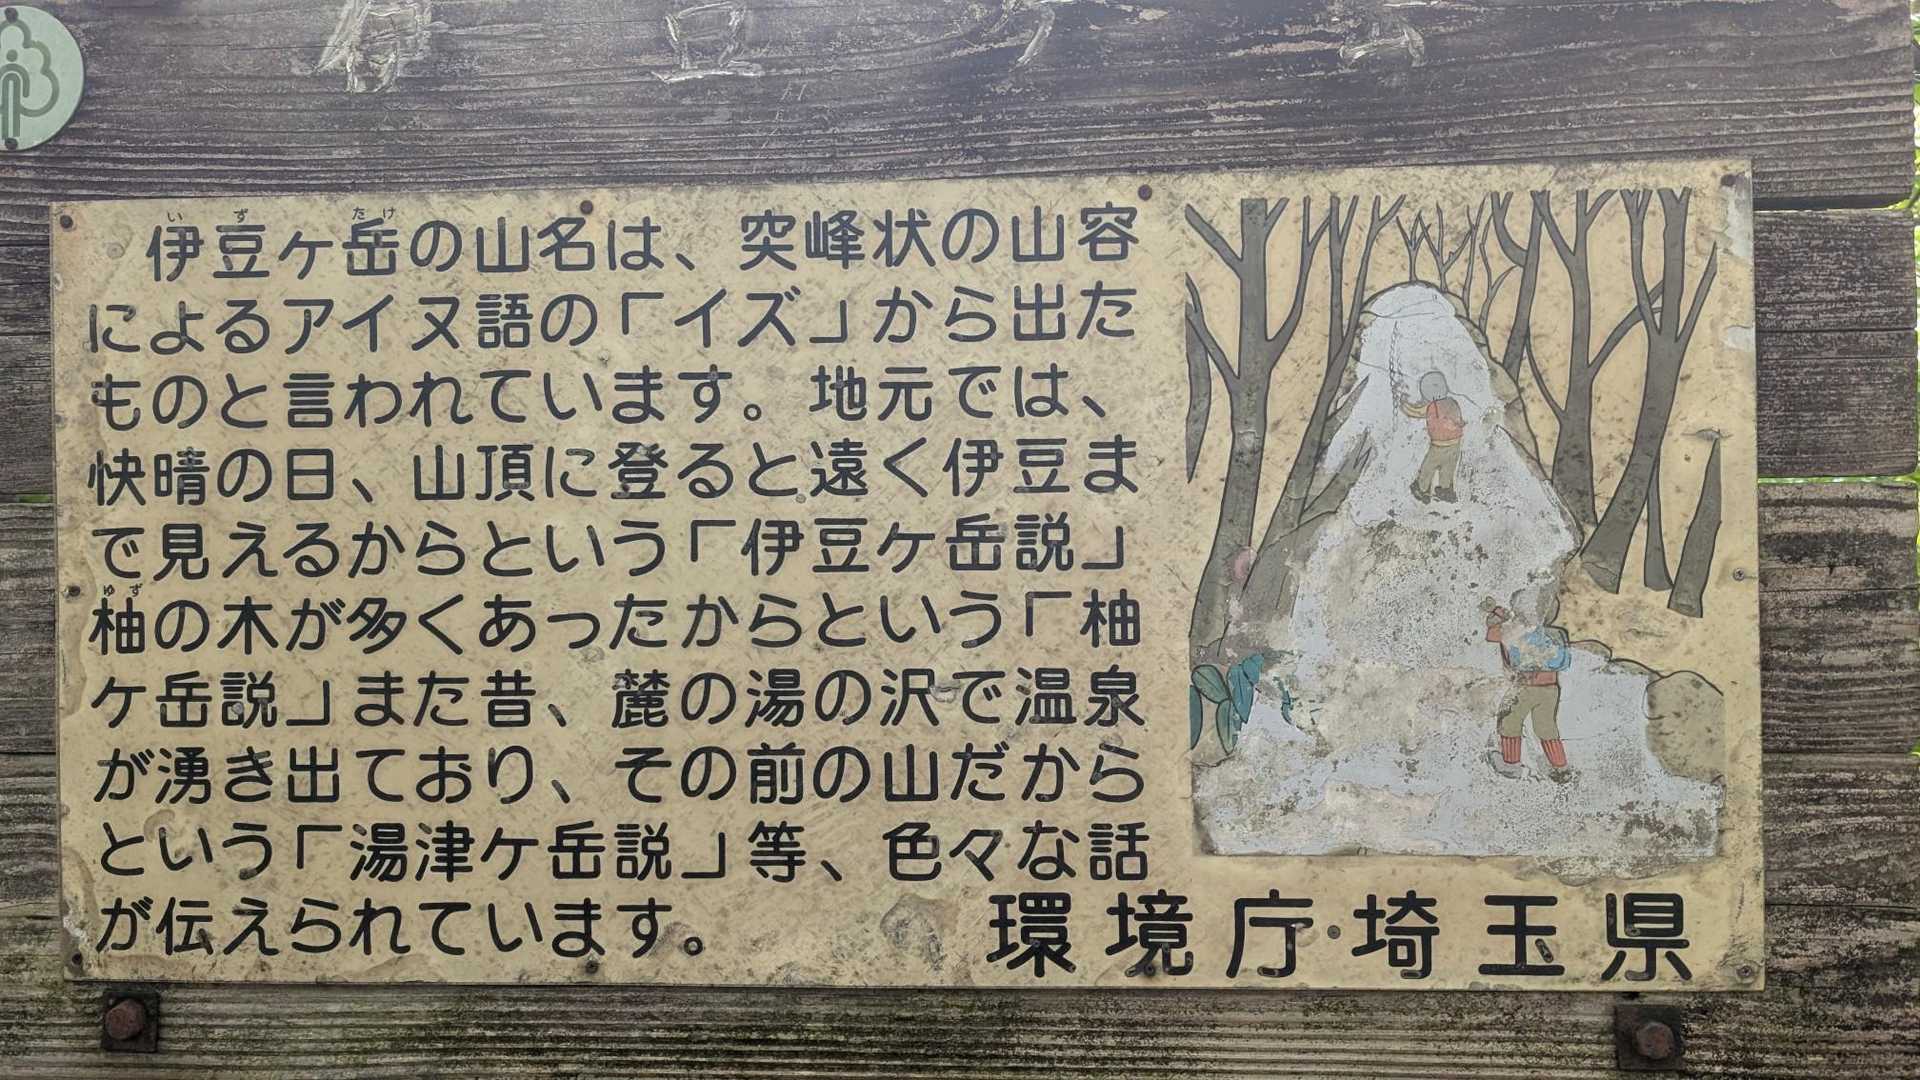 伊豆ヶ岳の山名は、突峰状の山容
によるアイヌ語の「イズ」から出た
ものと言われています。地元では、
快晴の日、山頂に登ると遠く伊豆ま
で見えるからという「伊豆ケ岳説」
柚の木が多くあったからという「柚
ケ岳説」また昔、麓の湯の沢で温泉
が湧き出ており、その前の山だから
という「湯津ケ岳説」等、色々な話
が伝えられています。
環境庁・埼玉県